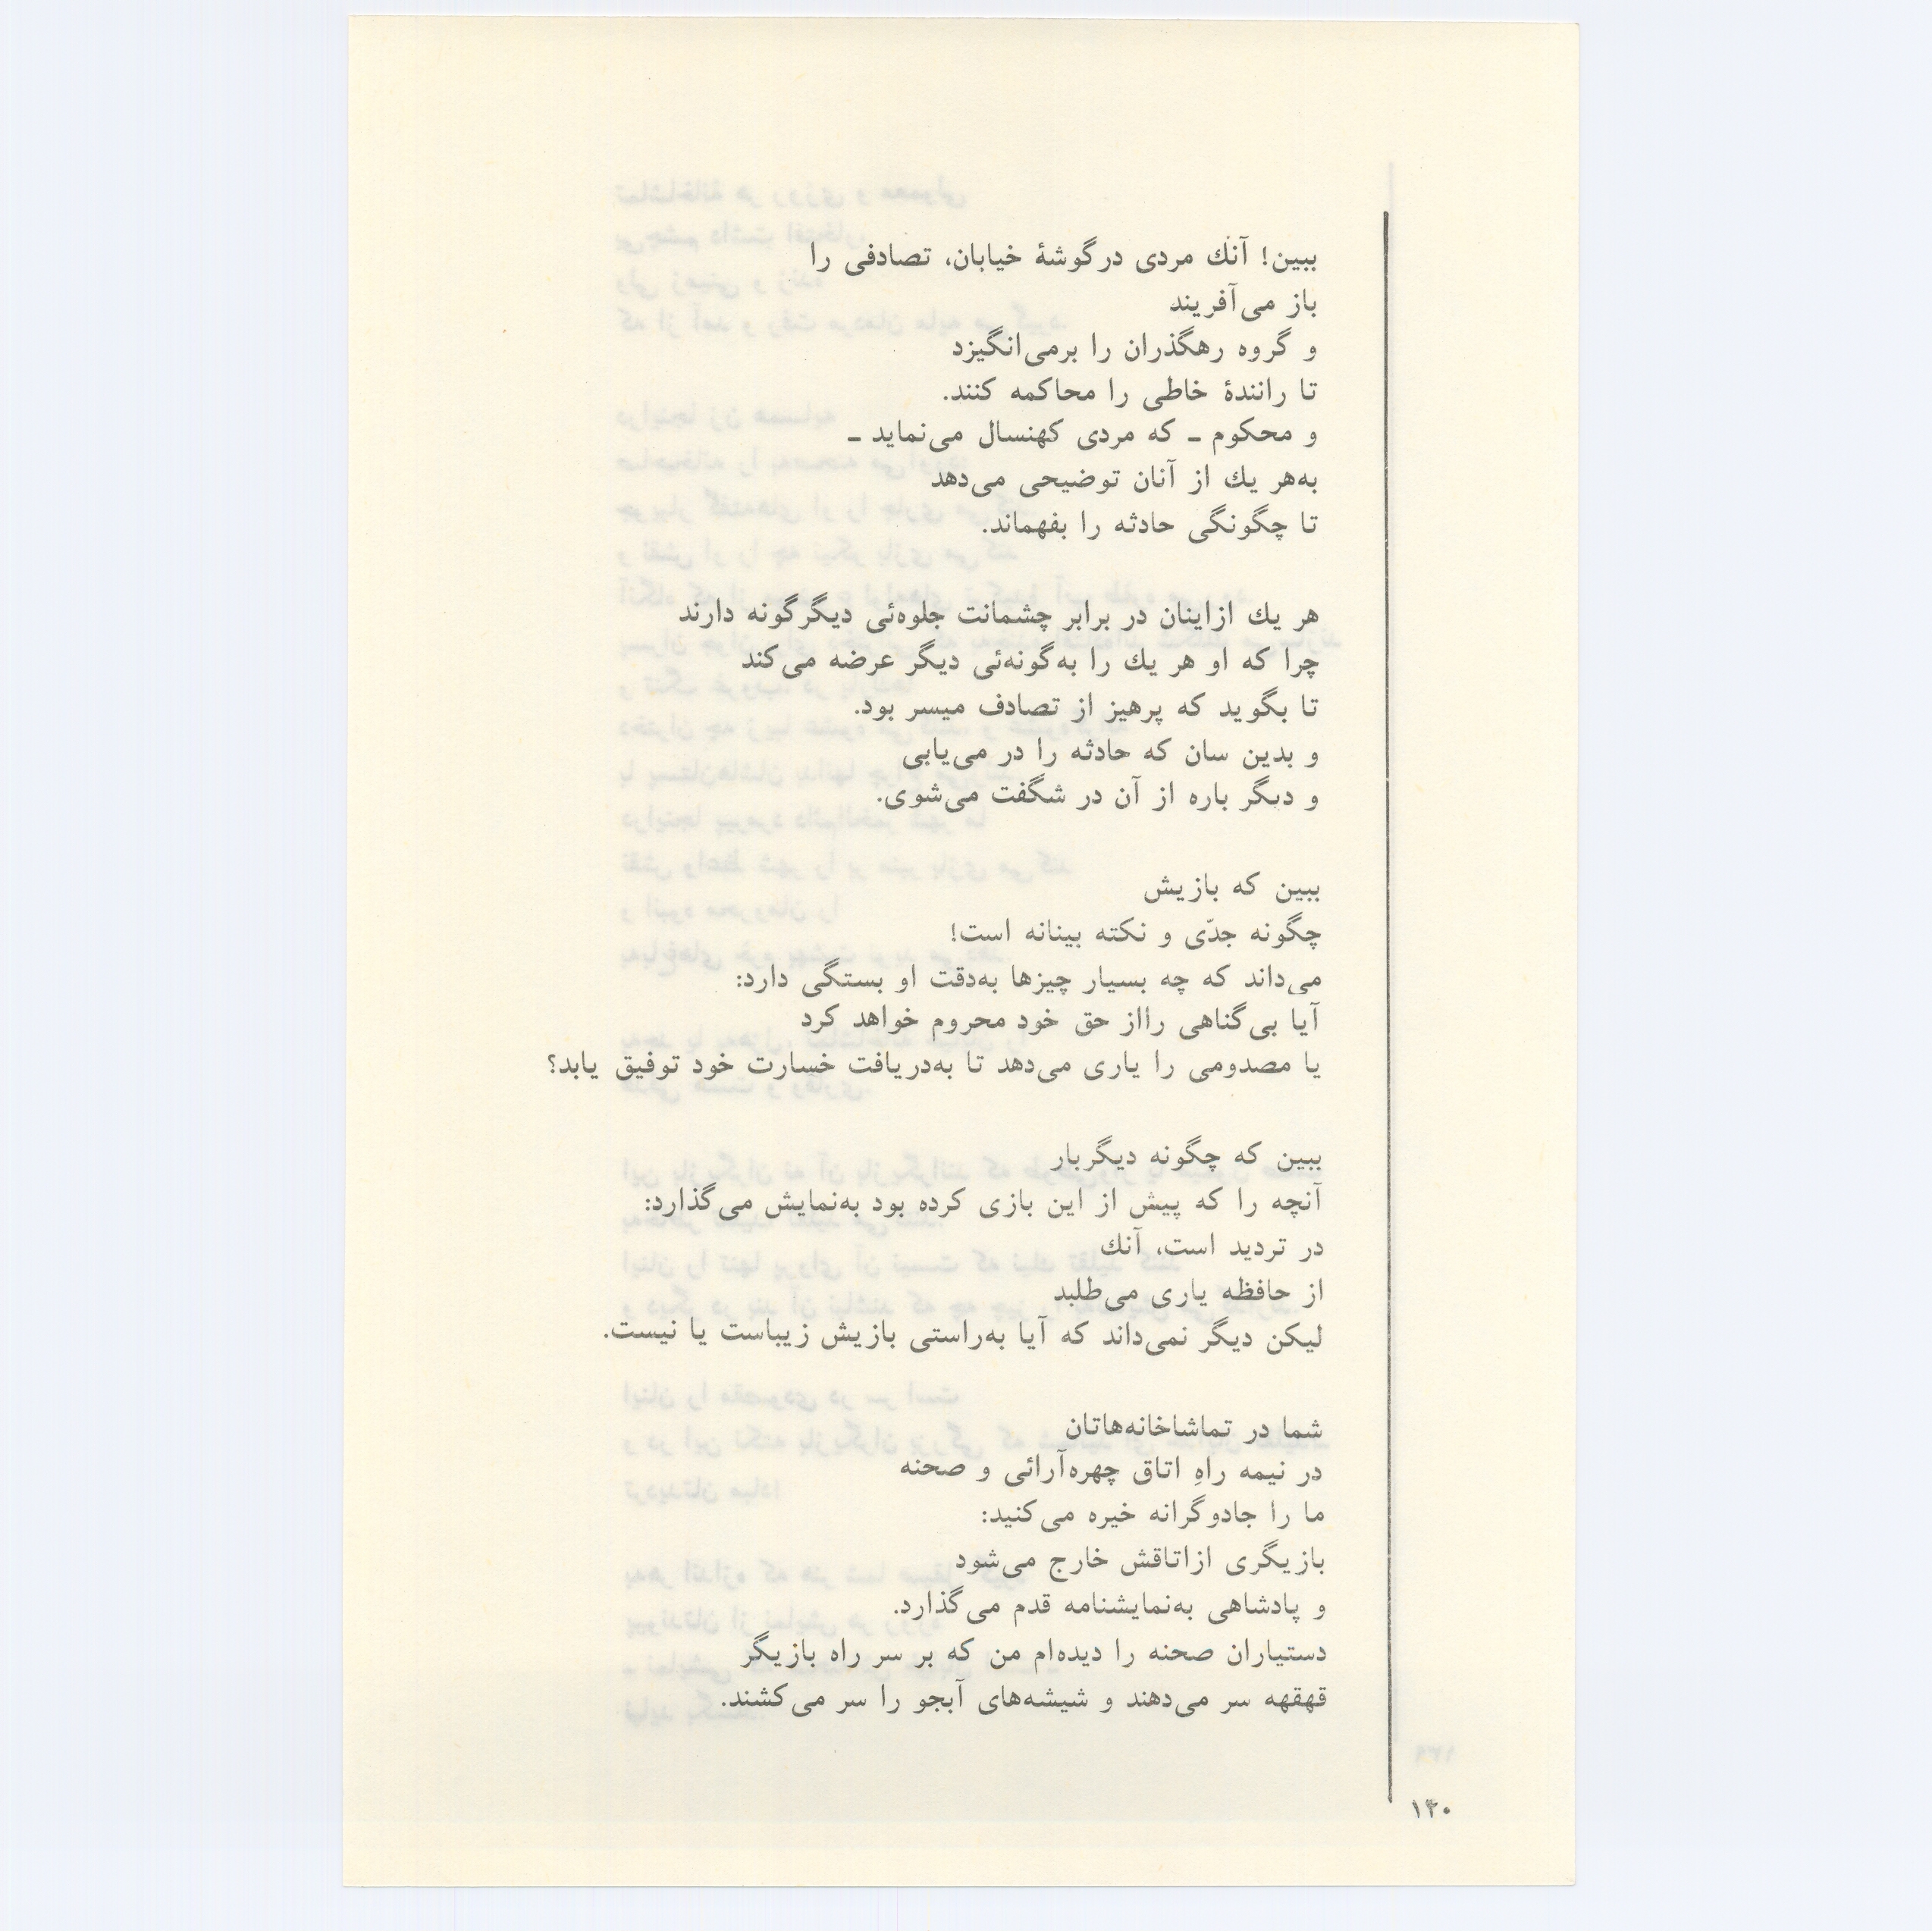 ببین! آنك مردی درگوشهٔ خیابان، تصادفی را
باز می‌آفریند
و گروه رهگذران را برمی‌انگیزد
تا رانندهٔ خاطی را محاکمه کنند.
و محکوم ـ که مردی کهنسال می‌نماید ـ
به‌هر یك از آنان توضیحی می‌دهد
تا چگونگی حادثه را بفهماند.
هر یك ازاینان در برابر چشمانت جلوه‌ئی دیگرگونه دارند
چرا که او هر یك را به‌گونه‌ئی دیگر عرضه می‌کند
تا بگوید که پرهیز از تصادف میسر بود.
و بدین سان که حادثه را در می‌یابی
و دیگر باره از آن در شگفت می‌شوی.
ببین که بازیش
چگونه جدّی و نکته بینانه است!
می‌داند که چه بسیار چیزها به‌دقت او بستگی دارد:
آیا بی‌گناهی رااز حق خود محروم خواهد کرد
یا مصدومی را یاری می‌دهد تا به‌دریافت خسارت خود توفیق یابد؟
ببین که چگونه دیگربار
آنچه را که پیش از این بازی کرده بود به‌نمایش می‌گذارد:
در تردید است، آنك
از حافظه یاری می‌طلبد
لیکن دیگر نمی‌داند که آیا به‌راستی بازیش زیباست یا نیست.
شما در تماشاخانه‌هاتان
در نیمه راهِ اتاق چهره‌آرائی و صحنه
ما را جادوگرانه خیره می‌کنید:
بازیگری ازاتاقش خارج می‌شود
و پادشاهی به‌نمایشنامه قدم می‌گذارد.
دستیاران صحنه را دیده‌ام من که بر سر راه بازیگر
قهقهه سر می‌دهند و شیشه‌های آبجو را سر می‌کشند.
۱۴۰